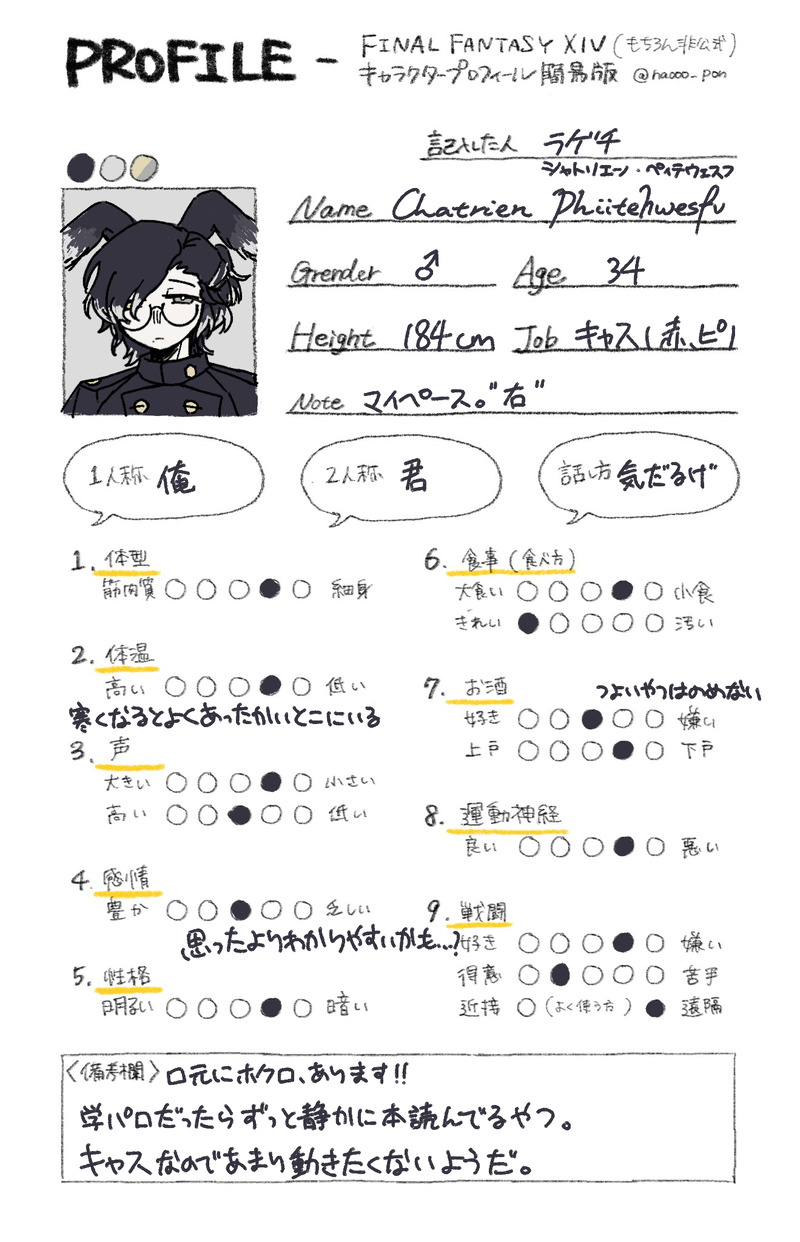 PROFILE - FINAL FANTASY XIV (もちろん非公式)
キャラクタープロフィール簡易版 @naooo_pon
記入した人 ラゲチ
シャトリエーン・ペイテウェスフ
Name Chatrien Phiitehwesfv
Grender ♂ Age 34
Height 184cm Job キャス(赤、ピ)
Note マイペース。"右"
1人称 俺
2人称 君
話し方 気だるげ
1. 体型
筋肉質 細身
2. 体温
高い 低い
寒くなるとよくあったかいとこにいる
3. 声
大きい 小さい
高い 低い
4. 感情
豊か 乏しい
思ったよりわかりやすいかも…?
5. 性格
明るい 暗い
6. 食事 (食べ方)
大食い 小食
きれい 汚い
7. お酒 つよいやつはのめない
好き 嫌い
上戸 下戸
8. 運動神経
良い 悪い
9. 戦闘
好き 嫌い
得意 苦手
近接 (よく使う方) 遠隔
〈備考欄〉口元にホクロ、あります!!
学パロだったらずっと静かに本読んでるやつ。
キャスなのであまり動きたくないようだ。